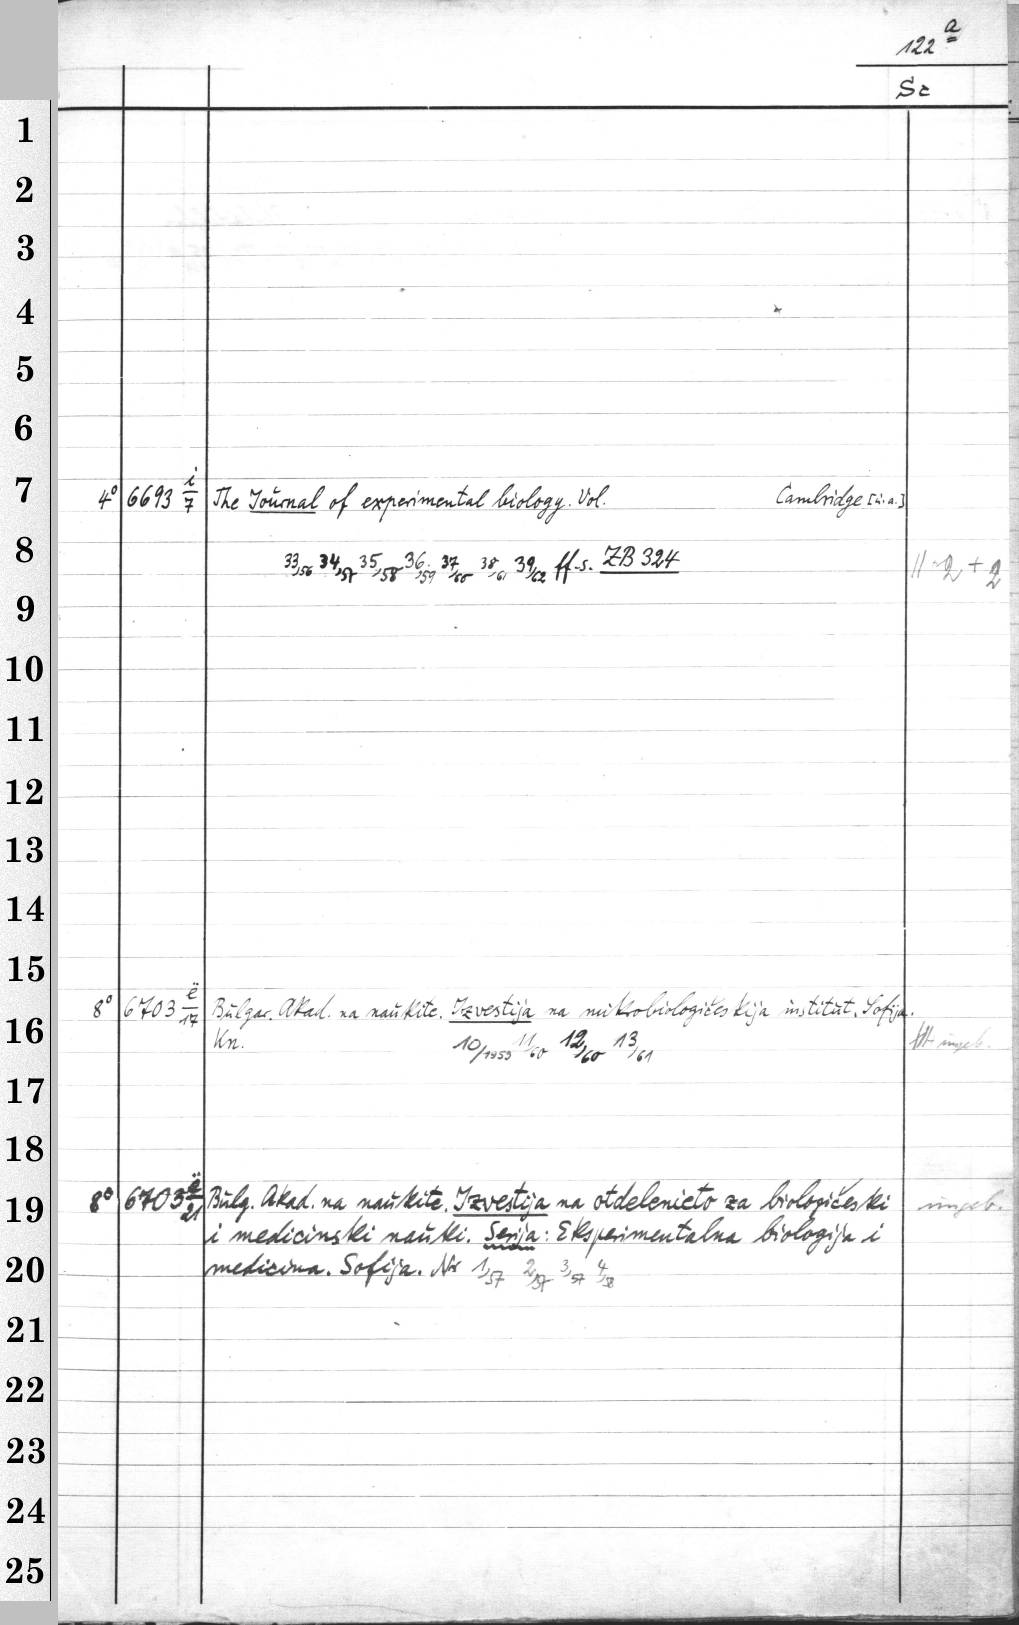 122 a
Sc
1
2
3
4
5
6
7
4° 6693 i/7 The Journal of experimental biology. Vol. Cambridge [u.a.]
8
33,56 34,57 35,58 36,59 37,60 38,61 39,62 ff. s. ZB 324
9
10
11
12
13
14
15
8° 6703 ë/17 Bulgar. Akad. na naukite. Izvestija na mikrobiologičeskija institut. Sofija.
16
Kn. 10/1959 11/60 12,60 13,61 ungeb.
17
18
19
8° 6703 ë/21 Bulg. Akad. na naukite. Izvestija na otdelenieto za biologičeski ungeb.
i medicinski nauki. Serija: Eksperimentalna biologija i
20
medicina. Sofija. Nr 1,57 2,57 3,57 4,58
21
22
23
24
25